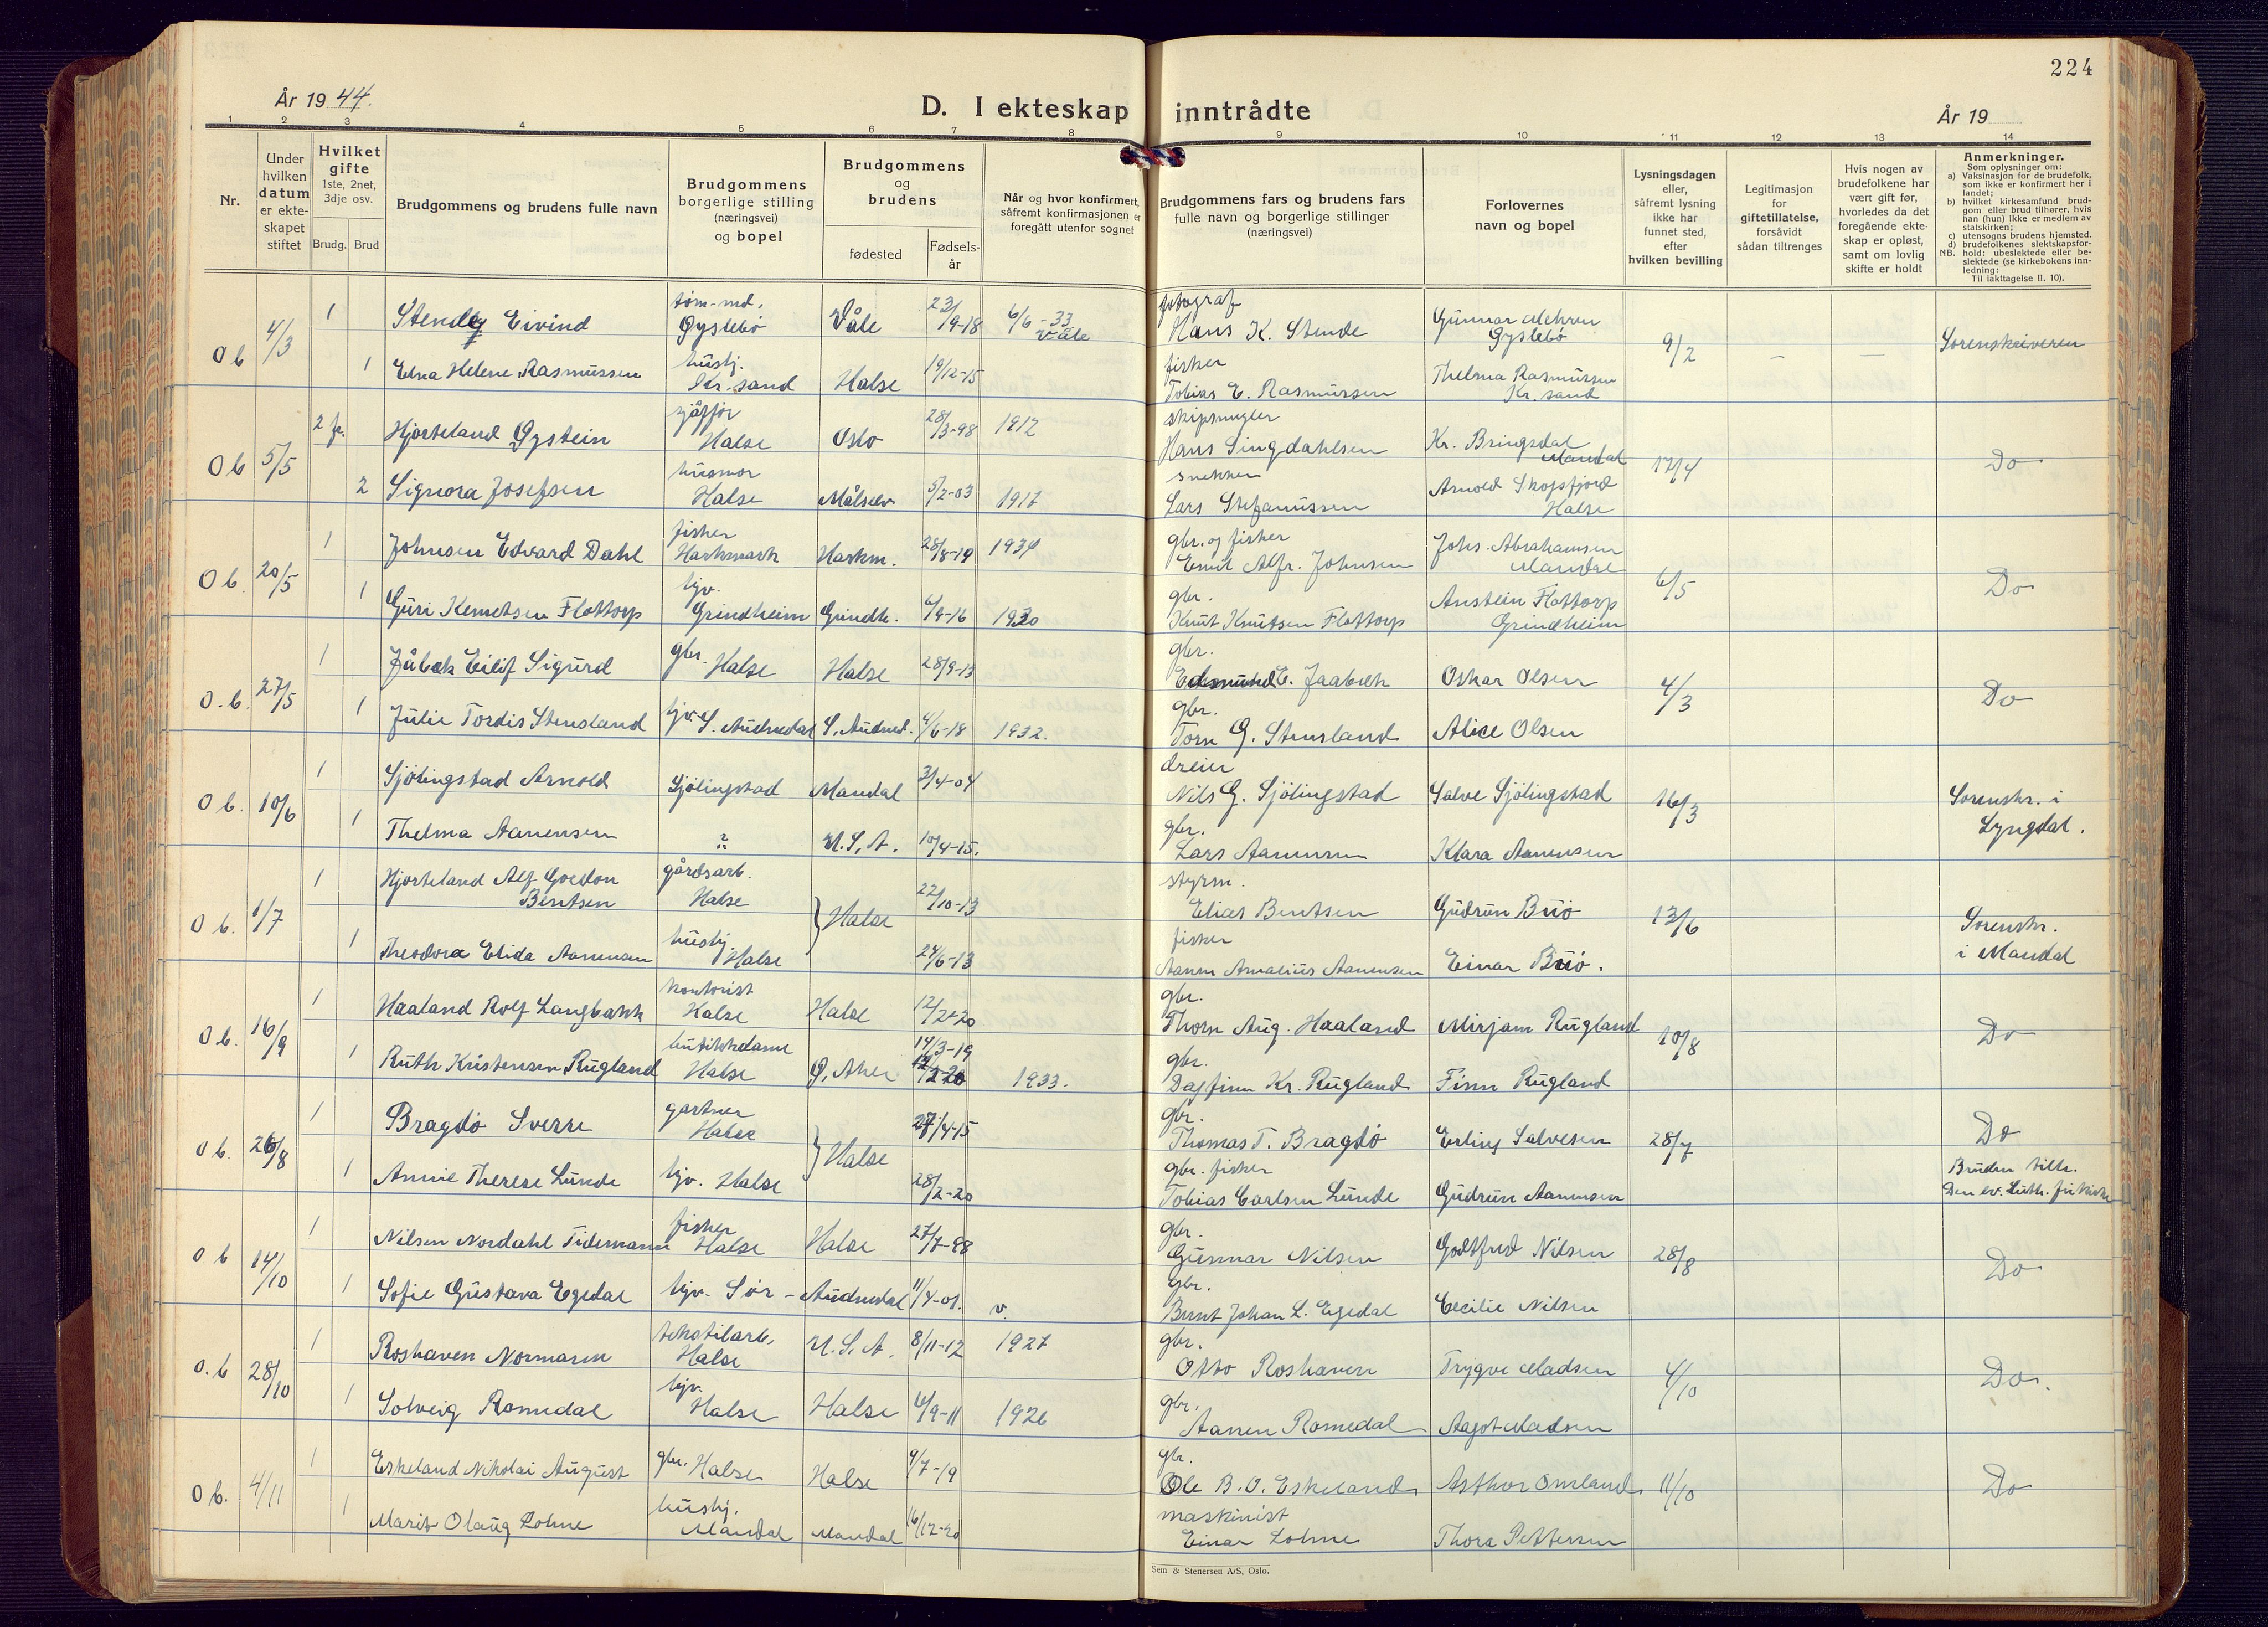 224
År 1944.
D. I ekteskap inntrådte
År 19
1 2 3 4 5 6 7 8 9 10 11 12 13 14
Nr.
Under hvilken datum er ekteskapet stiftet
Hvilket gifte 1ste, 2net, 3dje osv.
Brudg. Brud
Brudgommens og brudens fulle navn
Brudgommens borgerlige stilling (næringsvei) og bopel
Brudgommens og brudens
fødested
Fødsels-år
Når og hvor konfirmert, såfremt konfirmasjonen er foregått utenfor sognet
Brudgommens fars og brudens fars fulle navn og borgerlige stillinger (næringsvei)
Forlovernes navn og bopel
Lysningsdagen eller, såfremt lysning ikke har funnet sted, efter hvilken bevilling
Legitimasjon for giftetillatelse, forsåvidt sådan tiltrenges
Hvis nogen av brudefolkene har vært gift før, hvorledes da det foregående ekteskap er opløst, samt om lovlig skifte er holdt
Anmerkninger.
Som oplysninger om:
a) Vaksinasjon for de brudefolk, som ikke er konfirmert her i landet;
b) hvilket kirkesamfund brudgom eller brud tilhører, hvis han (hun) ikke er medlem av statskirken;
c) utensogns brudens hjemsted.
d) brudefolkenes slektskapsforhold: ubeslektede eller beslektede (se kirkebokens innledning:
NB.
Til iakttagelse II. 10).
O b 4/3 1 Stende Eivind tøm-md. Øyslebø Våle 23/9-18 6/6-33 Våle fotograf Hans K. Stende Gunnar Mehren Øyslebø 9/2 – — Sorenskriveren
1 Edna Helene Rasmussen hustj. Kr.sand Halse 19/12-15 fisker Tobias E. Rasmussen Thelma Rasmussen Kr.sand
O b 5/5 2 fr. Hjorteland Øystein sjåfør Halse Oslo 28/3-98 1912 skipsmegler Hans Singdahlsen Kr. Bringsdal Mandal 17/4 Do
2 Signora Josefsen husmor Halse Målselv 5/2-03 1917 snekker Lars Stefanussen Arnold Skogsfjord Halse
O b. 20/5 1 Johnsen Edvard Dahl fisker Harkmark Harkm. 28/8-19 1934 gbr. og fisker Emil Alfr. Johnsen Johs. Abrahamsen Mandal 6/5 Do
1 Guri Knutsen Flottorp hjv. Grindheim Grindh. 6/9-16 1930 gbr. Knut Knutsen Flottorp Anstein Flottorp Grindheim
O. b. 27/5 1 Jåbæk Eilif Sigurd gbr. Halse Halse 28/9-13 gbr. Edmund E. Jaabæk Oskar Olsen 4/3 Do
1 Julie Tordis Stensland hjv. S. Audnedal S. Audned. 4/6-18 1932. gbr. Torn G. Stensland Alice Olsen
O b. 10/6 1 Sjölingstad Arnold Sjölingstad Mandal 3/4-04 dreier Nils G. Sjölingstad Salve Sjölingstad 16/3 Sorenskr. i Lyngdal.
1 Thelma Aanensen " U.S.A. 10/4-15. gbr. Lars Aanensen Klara Aanensen
O b. 1/7 1 Hjorteland Alf Gordon Bentsen gårdsarb. Halse } Halse 22/10-13 styrm. Elias Bentsen Gudrun Buö 13/6 Sorenskr. i Mandal
1 Theodora Elida Aanensen hustj. Halse 24/6-13 fisker Aanen Amalius Aanensen Einar Buö.
O b. 16/9 1 Haaland Rolf Langbakk kontorist Halse Halse 12/2-20 gbr. Thorn Aug. Haaland Mirjam Rugland 10/8 Do
1 Ruth Kristensen Rugland butikkdame Halse Ø. Aker 14/3-19 1933. gbr. Dagfinn Kr. Rugland Finn Rugland
O b. 26/8 1 Bragdö Sverre gartner Halse } Halse 27/4-15 gbr. Thomas T. Bragdö Erling Salvesen 28/7 Do
1 Annie Therese Lunde hjv. Halse 28/2-20 gbr. fisker Tobias Carlsen Lunde Gudrun Aanensen Bruden tilh. Den ev. Luth. frikirke
O b 14/10 1 Nilsen Nordahl Tidemann fisker Halse Halse 27/7-98 gbr. Gunnar Nilsen Godtfred Nilsen 28/8 Do
1 Sofie Gustava Egedal hjv. Sør-Audnedal 11/4-01. v. gbr. Bernt Johan L. Egedal Cecilie Nilsen
O. b 28/10 1 Roshaven Normann tekstilarb. Halse U.S.A. 8/11-12 1927 gbr. Otto Roshaven Trygve Madsen 4/10 Do.
1 Solveig Romedal hjv. Halse Halse 6/9-11 1926 gbr. Aanen Romedal Aagot Madsen
O b. 4/11 1 Eskeland Nikolai August gbr. Halse Halse 9/7-19 gbr. Ole B. O. Eskeland Asthor Omland 11/10 Do
1 Marit Olaug Lohne hustj. Mandal Mandal 16/12-20 maskinist Einar Lohne Thora Pettersen
Sem & Stenersen A/S, Oslo.